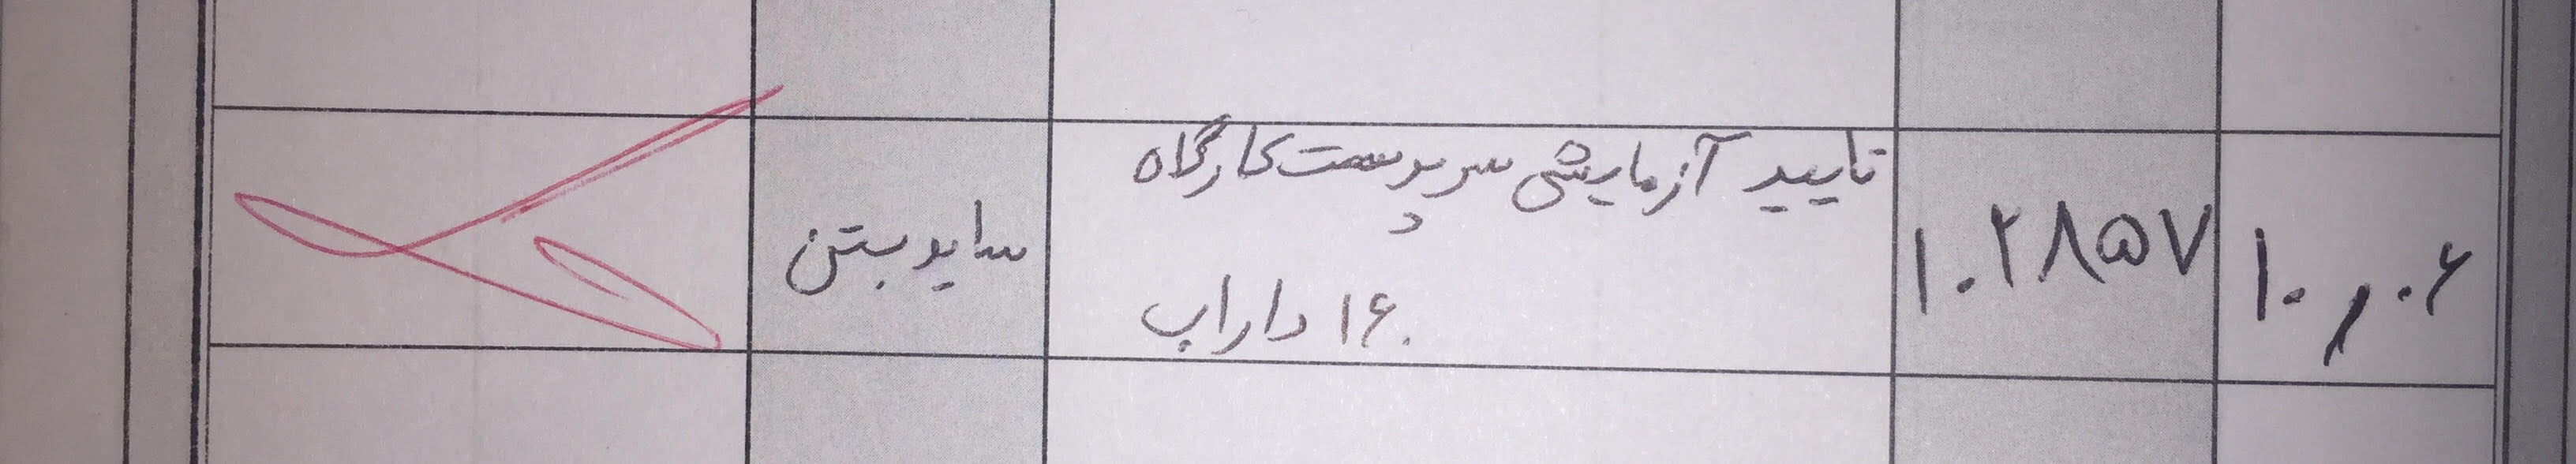 ۱۰٫۰۶
۱۰۲۸۵۷
تایید آزمایشی سرپرست کارگاه
۱۶۰ داراب
ساید بتن